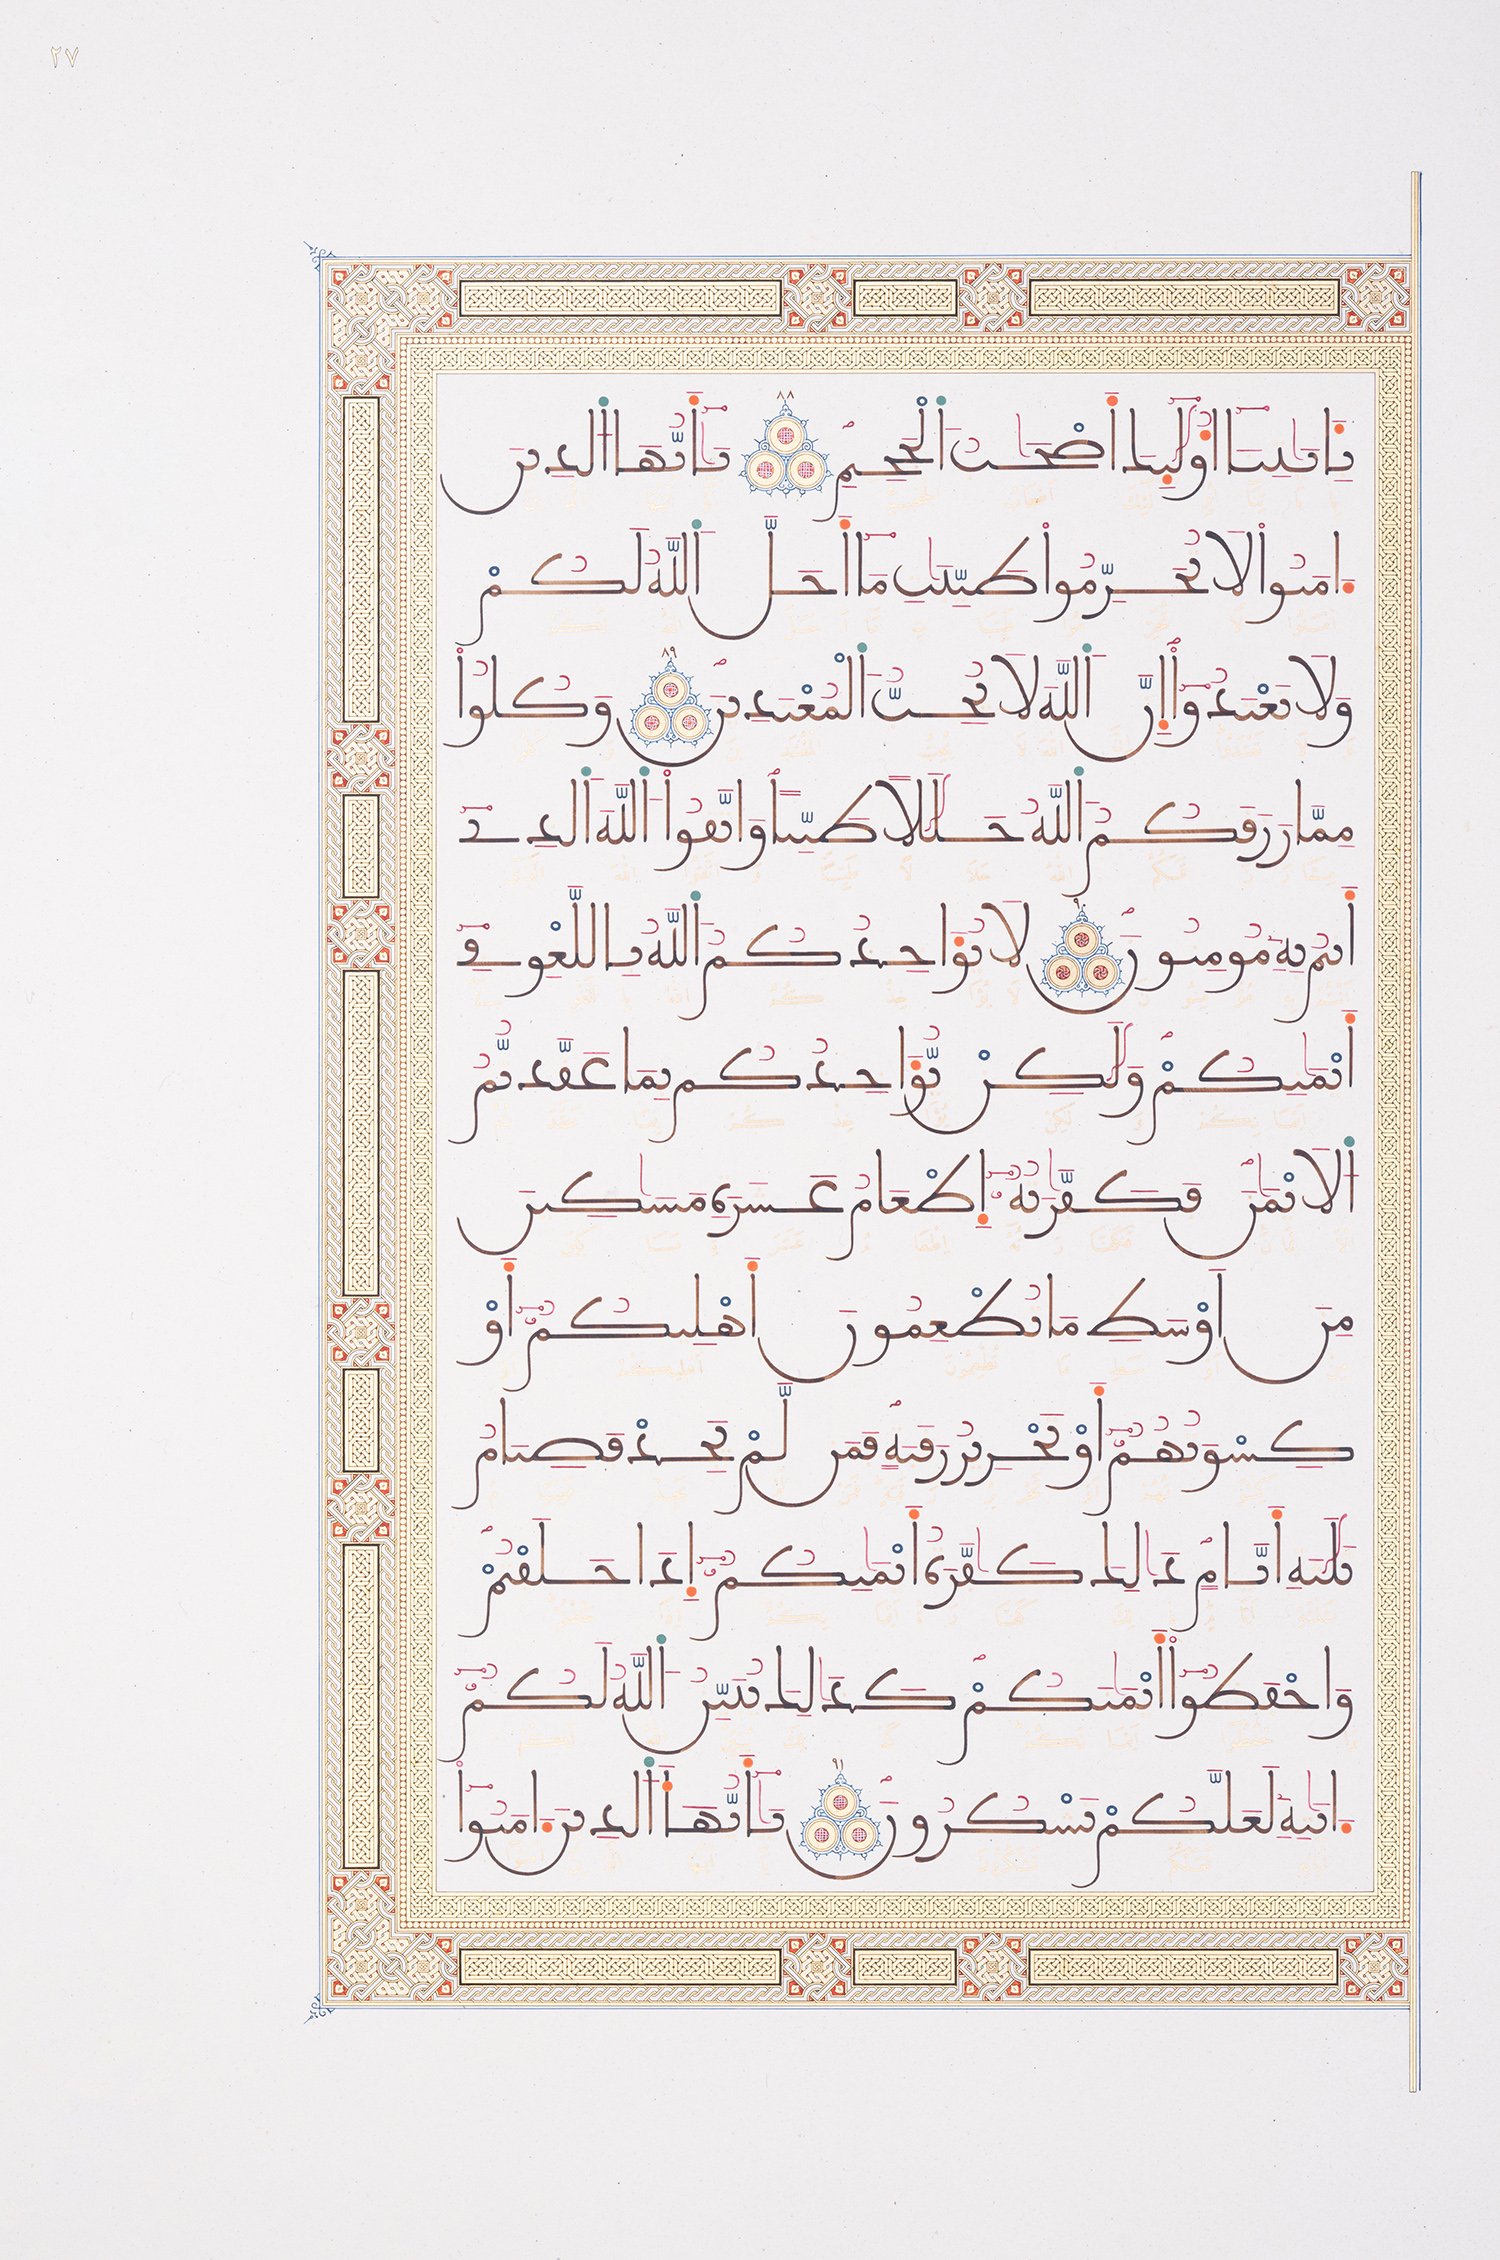 ٢٧
بِـَٔايَٰتِنَآ أُوْلَٰٓئِكَ أَصْحَٰبُ اُ۬لْجَحِيمِ ٨٨ يَٰٓأَيُّهَا اَ۬لذِينَ
ءَامَنُواْ لَا تُحَرِّمُواْ طَيِّبَٰتِ مَآ أَحَلَّ اَ۬للَّهُ لَكُمْ
وَلَا تَعْتَدُوٓاْ إِنَّ اَ۬للَّهَ لَا يُحِبُّ اُ۬لْمُعْتَدِينَ ٨٩ وَكُلُواْ
مِمَّا رَزَقَكُمُ اُ۬للَّهُ حَلَٰلاٗ طَيِّباٗ وَاتَّقُواْ اُ۬للَّهَ اَ۬لذِےٓ
أَنتُم بِهِۦ مُومِنُونَ ٩٠ لَا يُؤَاخِذُكُمُ اُ۬للَّهُ بِاللَّغْوِ فِےٓ
أَيْمَٰنِكُمْ وَلَٰكِنْ يُّؤَاخِذُكُم بِمَا عَقَّدتُّمُ
اُ۬لَايْمَٰنَ فَكَفَّٰرَتُهُۥٓ إِطْعَامُ عَشَرَةِ مَسَٰكِينَ
مِنَ اَوْسَطِ مَا تُطْعِمُونَ أَهْلِيكُمُۥٓ أَوْ
كِسْوَتُهُمُۥٓ أَوْ تَحْرِيرُ رَقَبَةٖ فَمَن لَّمْ يَجِدْ فَصِيَامُ
ثَلَٰثَةِ أَيَّامٖ ذَٰلِكَ كَفَّٰرَةُ أَيْمَٰنِكُمُۥٓ إِذَا حَلَفْتُمْ
وَاحْفَظُوٓاْ أَيْمَٰنَكُمْ كَذَٰلِكَ يُبَيِّنُ اُ۬للَّهُ لَكُمُۥٓ
ءَايَٰتِهِۦ لَعَلَّكُمْ تَشْكُرُونَ ٩١ يَٰٓأَيُّهَا اَ۬لذِينَ ءَامَنُوٓاْ